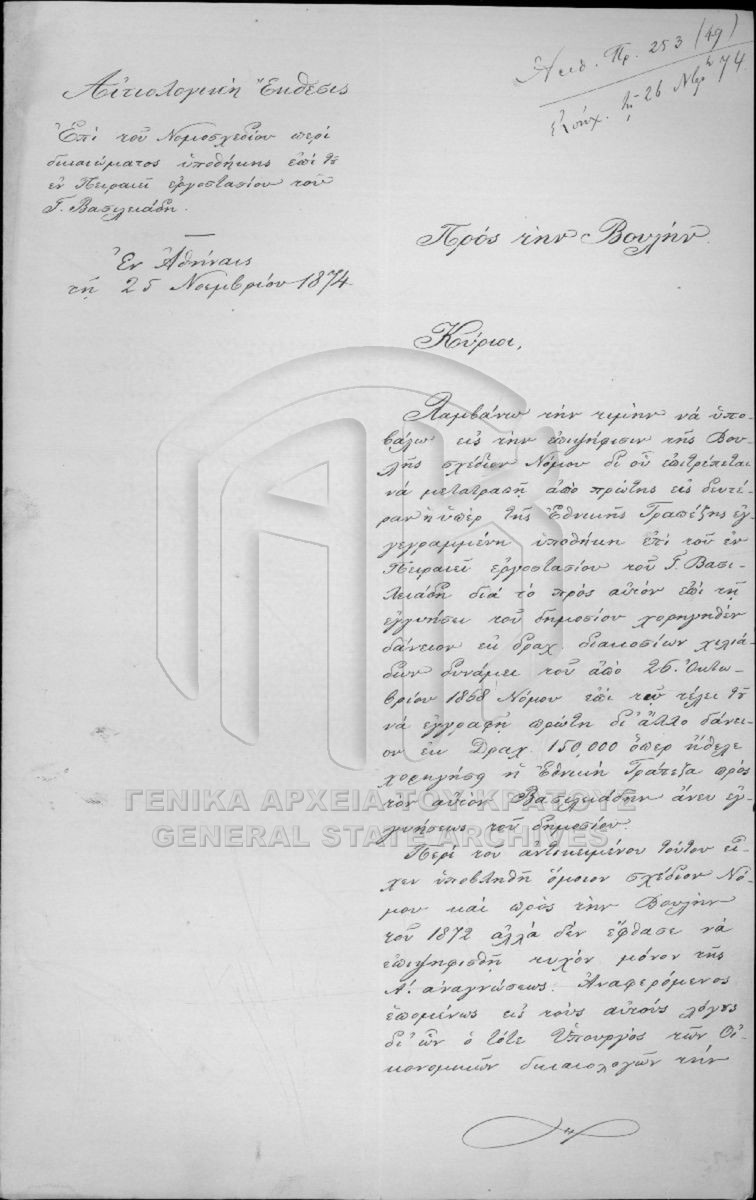 Ἀριθ. Πρ. 253 (49)
τῇ 26 Νβρ 74
Αἰτιολογικὴ Ἔκθεσις
Ἐπὶ τοῦ Νομοσχεδίου περὶ
δικαιώματος ὑποθήκης ἐπὶ τοῦ
ἐν Πειραιεῖ ἐργοστασίου τοῦ
Γ. Βασιλειάδη.
Ἐν Ἀθήναις
τῇ 25 Νοεμβρίου 1874
Πρὸς τὴν Βουλήν.
Κύριοι,
Λαμβάνω τὴν τιμὴν νὰ ὑπο-
βάλω εἰς τὴν ἐπιψήφισιν τῆς Βου-
λῆς σχέδιον Νόμου δι' οὗ ἐπιτρέπεται
νὰ μετατραπῇ ἀπὸ πρώτης εἰς δευτέ-
ραν ἡ ὑπὲρ τῆς Ἐθνικῆς Τραπέζης ἐγ-
γεγραμμένη ὑποθήκη ἐπὶ τοῦ ἐν
Πειραιεῖ ἐργοστασίου τοῦ Γ. Βασι-
λειάδη διὰ τὸ πρὸς αὐτὸν ἐπὶ τῇ
ἐγγυήσει τοῦ δημοσίου χορηγηθὲν
δάνειον ἐκ δραχ. διακοσίων χιλιά-
δων δυνάμει τοῦ ἀπὸ 26 Ὀκτω-
βρίου 1868 Νόμου ἐπὶ τῷ τέλει τοῦ
νὰ ἐγγραφῇ πρώτη δι' ἄλλο δάνει-
ον ἐκ Δραχ. 150,000 ὅπερ ἤθελε
χορηγήσῃ ἡ Ἐθνικὴ Τράπεζα πρὸς
τὸν αὐτὸν Βασιλειάδην ἄνευ ἐγ-
γυήσεως τοῦ δημοσίου.
Περὶ τοῦ ἀντικειμένου τούτου εἶ-
χεν ὑποβληθῆ ὅμοιον σχέδιον Νό-
μου καὶ πρὸς τὴν Βουλὴν
τοῦ 1872 ἀλλὰ δὲν ἔφθασε νὰ
ἐπιψηφισθῇ τυχὸν μόνον τῆς
Α'. ἀναγνώσεως. Ἀναφερόμενος
ἑπομένως εἰς τοὺς αὐτοὺς λόγους
δι' ὧν ὁ τότε Ὑπουργὸς τῶν Οἰ-
κονομικῶν δικαιολογῶν τὴν
ΓΕΝΙΚΑ ΑΡΧΕΙΑ ΤΟΥ ΚΡΑΤΟΥΣ
GENERAL STATE ARCHIVES